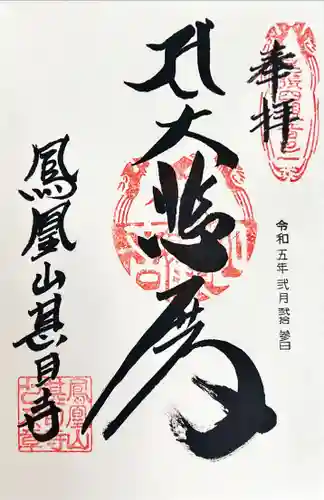 奉拝
令和五年 弐月 弐拾 参日
大悲殿
鳳凰山甚目寺